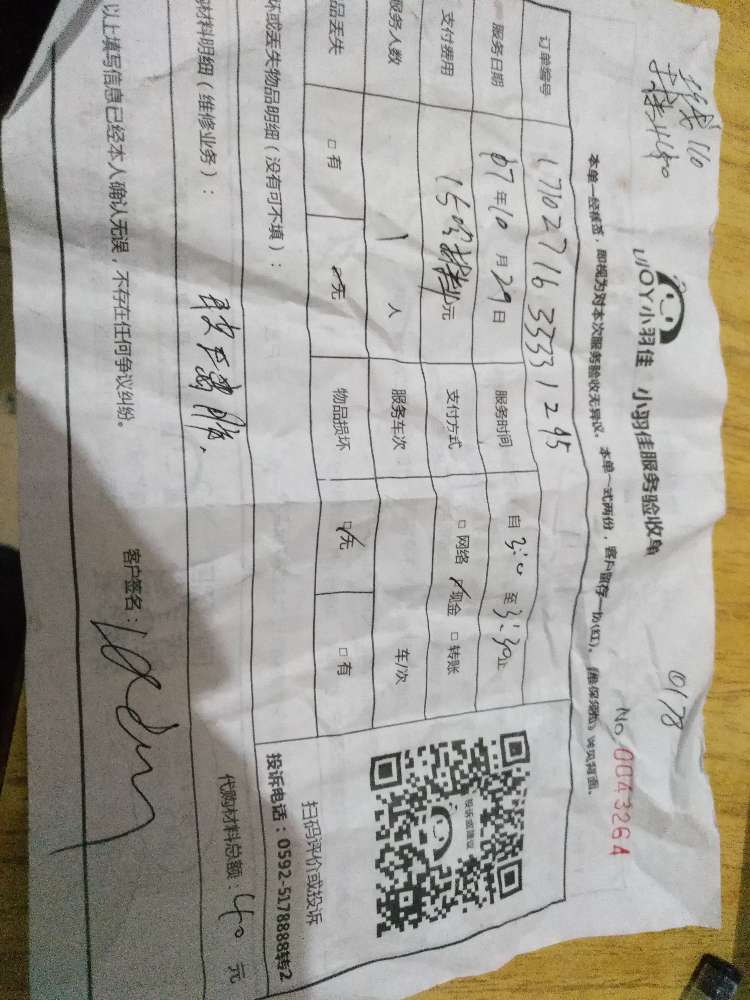 0178
No. 0043264
JJOY小羽佳 小羽佳服务验收单
本单一经签签，即视为对本次服务验收无异议。本单一式两份，客户留存一份(红)。
订单编号 17102716 33331295
服务日期 年10月29日 服务时间 自3:0 至3:30止
支付费用 150 元 支付方式 □网络 ☑现金 □转账
服务人数 1 人 服务车次 车/次
品丢失 □有 ☑无 物品损坏 ☑无 □有
坏或丢失物品明细（没有可不填）：
扫码评价或投诉
投诉电话：0592-5178888转2
材料明细（维修业务）：
代购材料总额：40 元
以上填写信息已经本人确认无误，不存在任何争议纠纷。
客户签名：